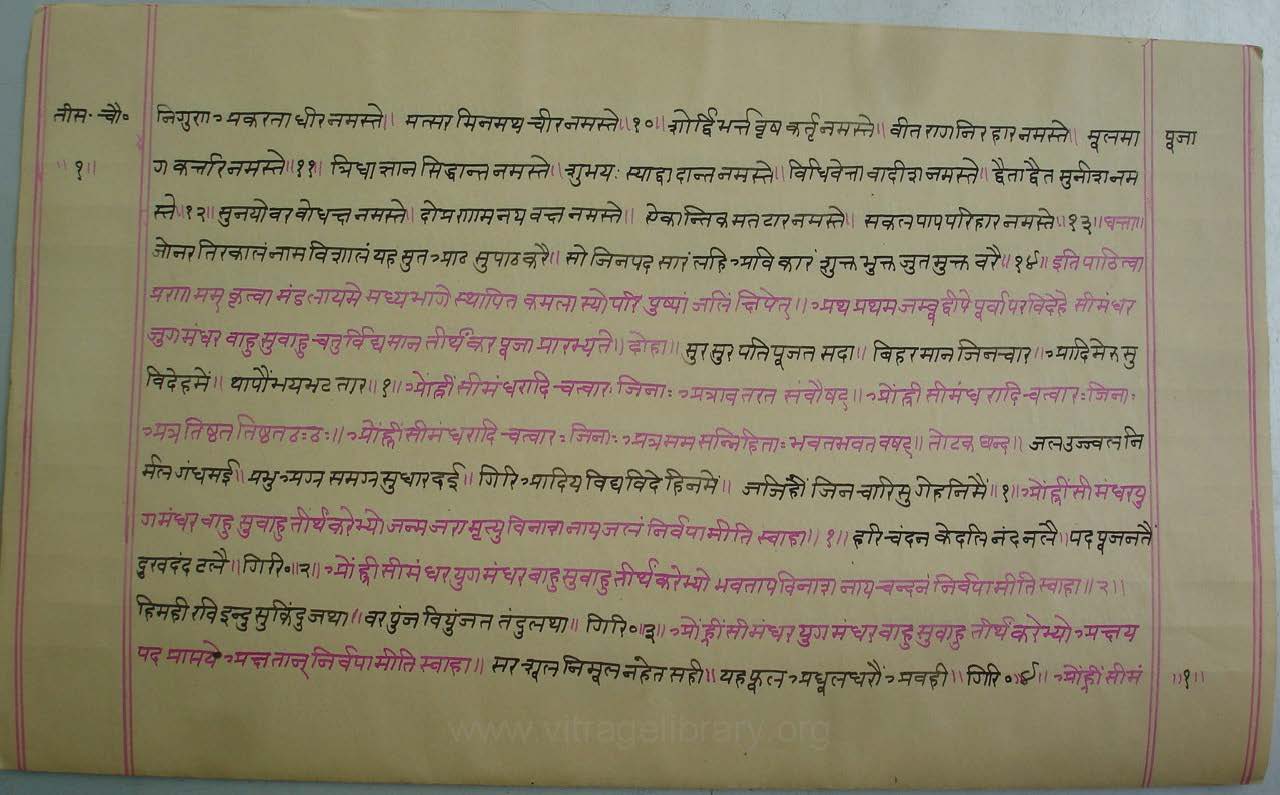 तीस. चौ० निगुरणअकरता धीर नमस्ते॥ मत्सर मिनमथ चीर नमस्ते॥१०॥ भर्त्त वृष कर्तृ नमस्ते॥ वीतराग निरहार नमस्ते॥ मूलमा पूजा
॥१॥ ग कर्त्तरि नमस्ते॥११॥ त्रिधा ज्ञान सिद्धान्त नमस्ते॥ शुभयः स्याद्वादान्त नमस्ते॥ विधिवेत्ता वादीश नमस्ते॥ द्वैताद्वैत सुनीश नम
स्ते॥१२॥ सुनयोवर वोधन्न नमस्ते॥ नय वन्न नमस्ते॥ ऐकान्तिक मत टार नमस्ते॥ सकल पाप परिहार नमस्ते॥१३॥ घत्ता॥
जो नर तिरकालं नाम विशालं यह सुत अाठ सुपाठ करै॥ सो जिनपद सारं लहि अविकारं शुक्त भुक्त जुत मुक्त वरै॥१४॥ इति पठित्वा
प्रणामम् कृत्वा मंडलायमे मध्यभागे स्थापित कमलास्योपरि पुष्पांजलिं क्षिपेत्॥ अथ प्रथम जम्बूद्वीपे पूर्वापरविदेहे सीमंधर
जुगमंधर वाहु सुवाहु चतुर्विद्यमान तीर्थंकर पूजा प्रारभ्यते॥ दोहा॥ सुर सुरपति पूजत सदा॥ बिहरमान जिन चार॥ आदि मेरु सु
विदेहमें॥ थापौं भय भट तार॥१॥ ओंह्रीं सीमंधरादि चत्वारः जिनाः अत्रावतरत संवौषट्॥ ओंह्रीं सीमंधरादि चत्वारः जिनाः
अत्र तिष्ठत तिष्ठत ठःठः॥ ओंह्रीं सीमंधरादि चत्वारः जिनाः अत्र मम सन्निहिताः भवत भवत वषट्॥ तोटक छन्द॥ जल उज्ज्वल नि
र्मल गंधमई॥ प्रभु अग्न समग्न सुधार दई॥ गिरि आदिय विद्य विदेहनिमें॥ जजिहौं जिन चारि सु गेहनिमैं॥१॥ ओंह्रीं सीमंधर यु
गमंधर वाहु सुवाहु तीर्थंकरेभ्यो जन्म जरा मृत्यु विनाशनाय जलं निर्वपामीति स्वाहा॥१॥ हरि चंदन केदलि नंदनलै॥ पद पूजनतैं
दुखदंद टलै॥ गिरि०॥२॥ ओंह्रीं सीमंधर युगमंधर वाहु सुवाहु तीर्थंकरेभ्यो भवताप विनाशनाय चन्दनं निर्वपामीति स्वाहा॥२॥
हिमही रवि इन्दु सुकिंदु जथा॥ वर पुंज वियुंजत तंदुल था॥ गिरि०॥३॥ ओंह्रीं सीमंधर युगमंधर वाहु सुवाहु तीर्थंकरेभ्यो अक्षय
पद प्राप्तये अक्षतान् निर्वपामीति स्वाहा॥ सर शूल निमूलन हेत सही॥ यह फूल अधूल धरौं अवही॥ गिरि०॥४॥ ओंह्रीं सीमं ॥१॥
www.vitragelibrary.org